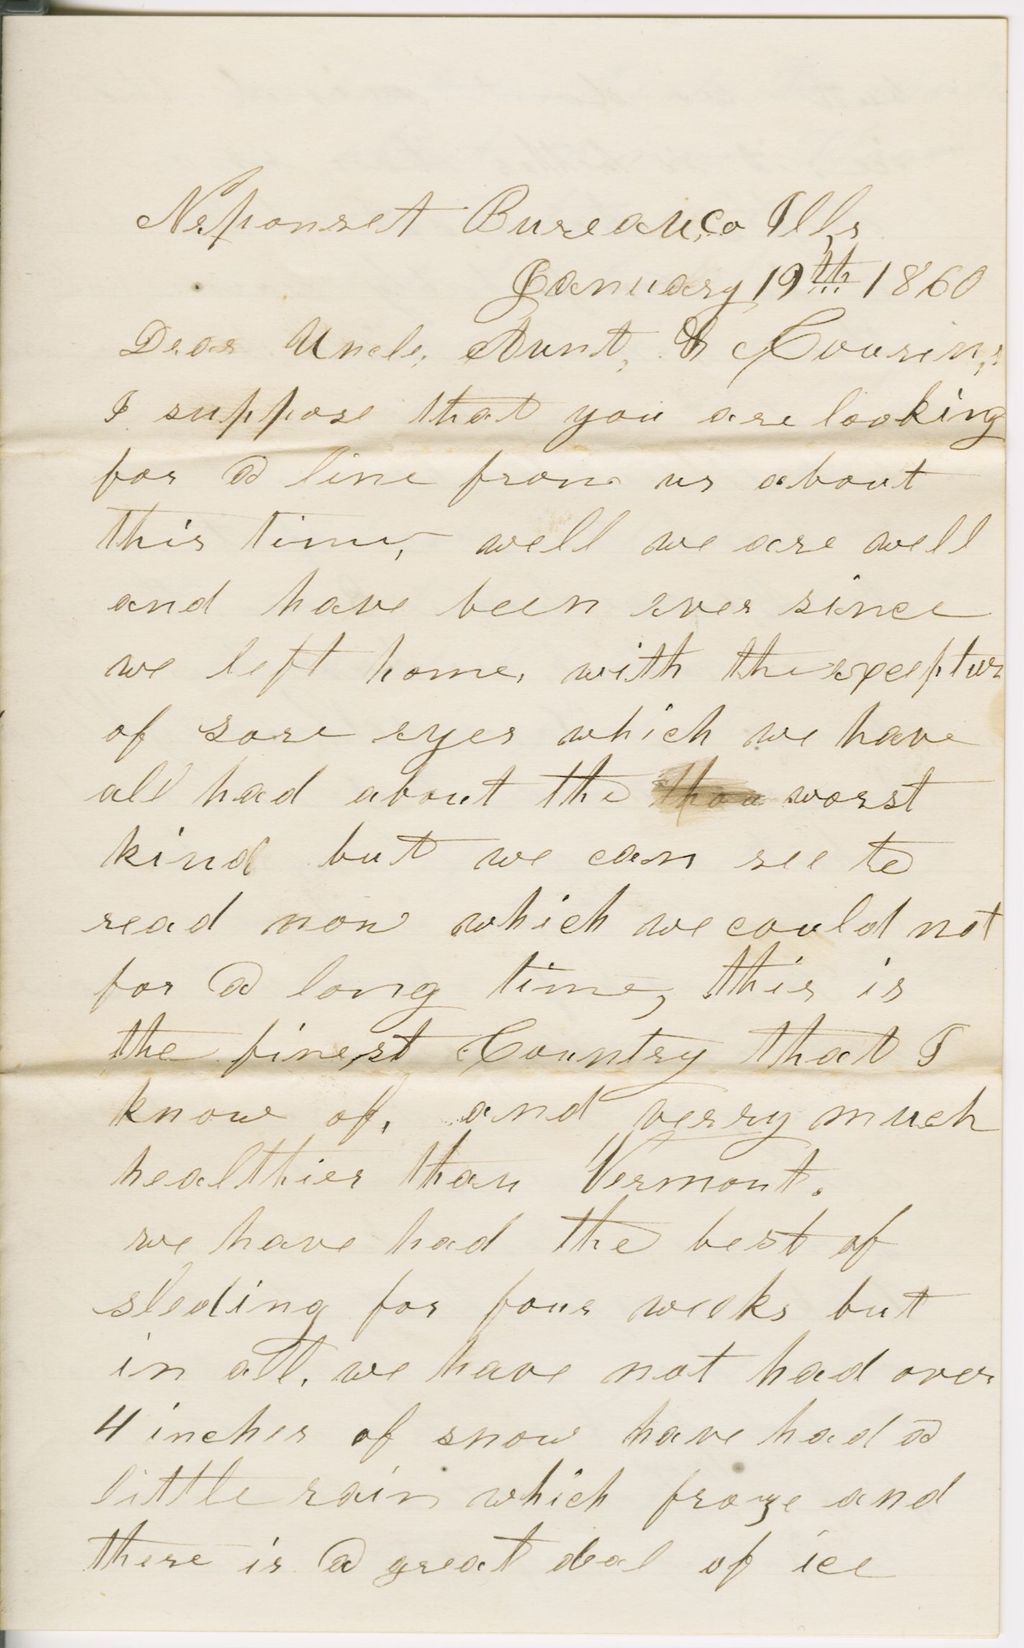 Neponset Bureau, Co Ills
January, 19th 1860
Dear Uncle, Aunt, & Cousins,
I suppose that you are looking
for a line from us about
this time, well we are well
and have been ever since
we left home, with the exceptun
of sore eyes which we have
all had about the worst
kind but we can see to
read now which we could not
for a long time, this is
the finest Country that I
know of, and verry much
healthier than Vermont.
we have had the best of
sleding for four weeks but
in all, we have not had over
4 inches of snow have had a
little rain which froze and
there is a great deal of ice